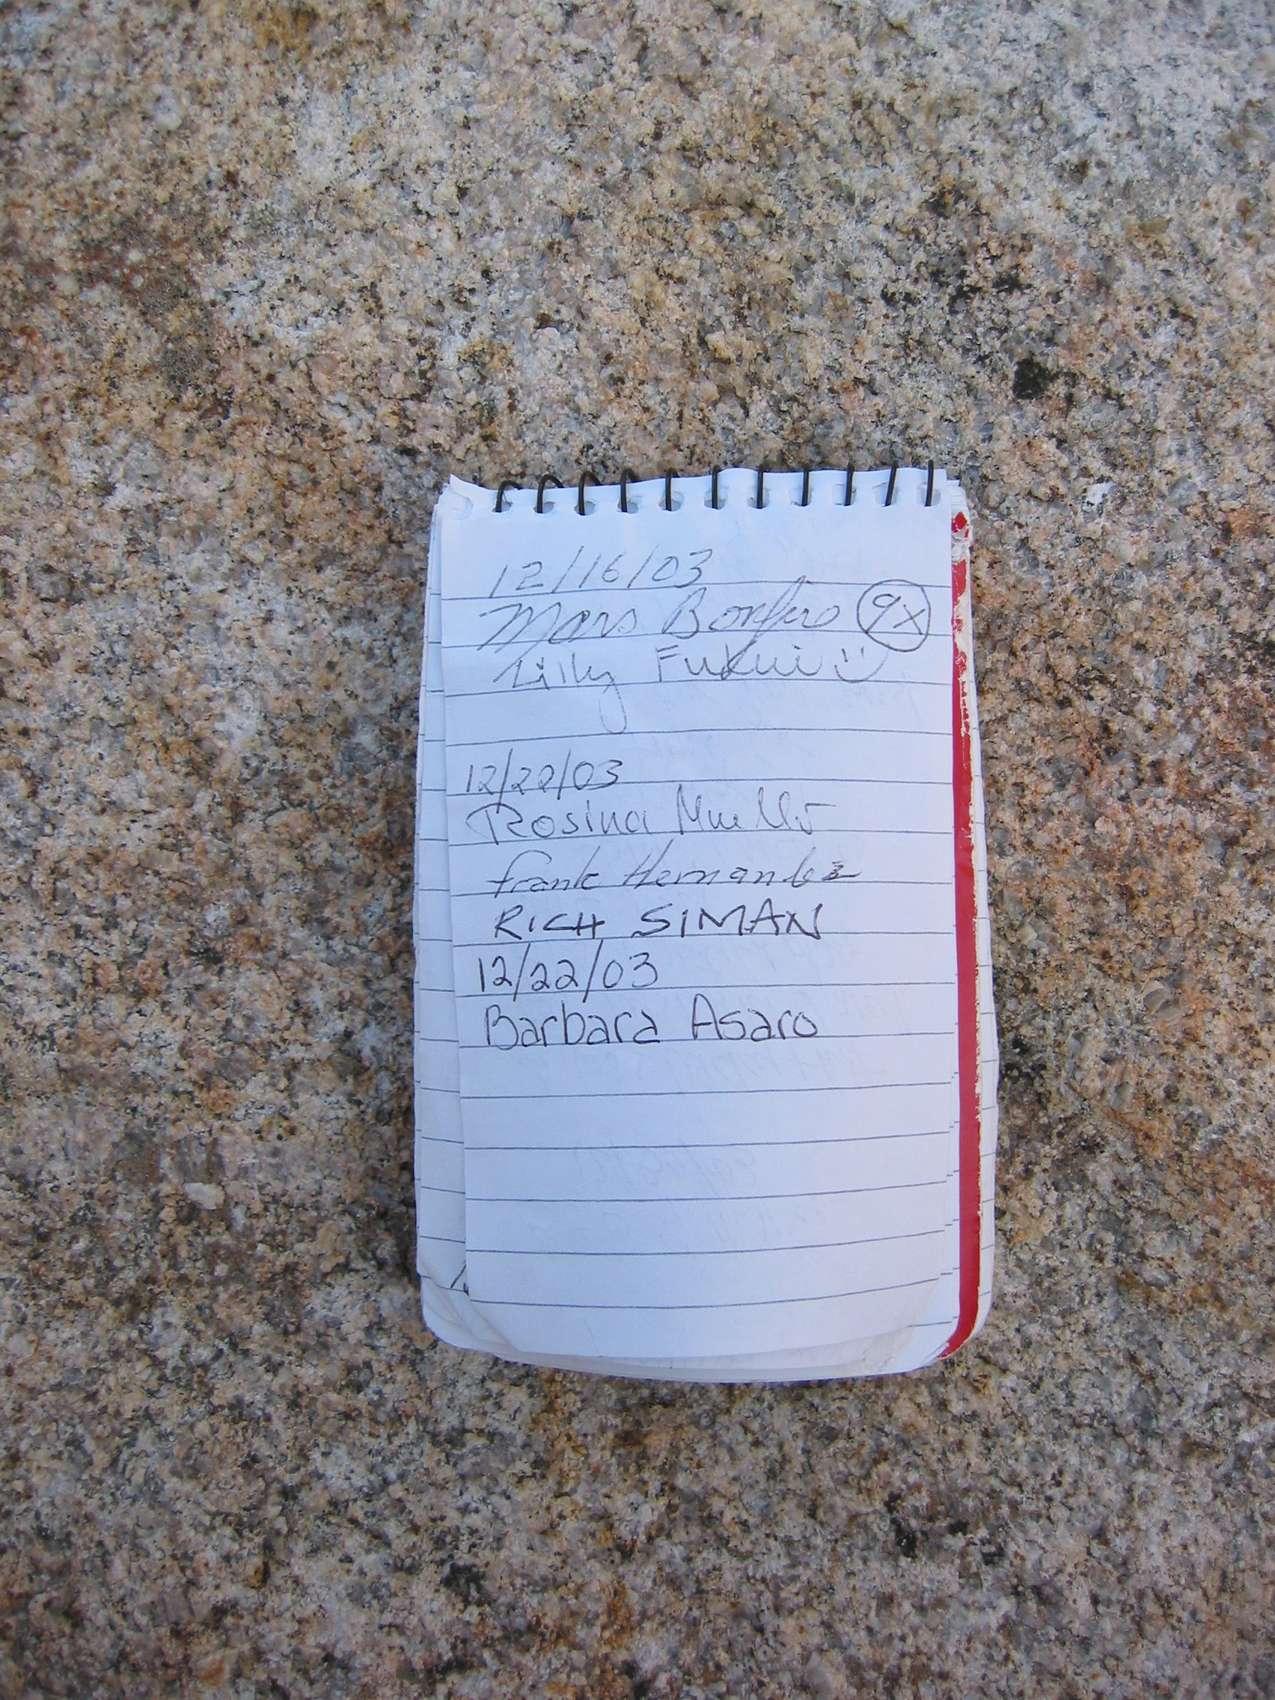 12/16/03
Mars Bonfire 9x
Lilly Fukui :)
12/22/03
Rosina Mueller
Frank Hernandez
RICH SIMAN
12/22/03
Barbara Asaro